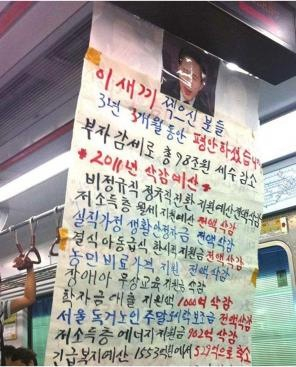 이 새끼 찍으신 분들
3년 3개월 동안 평안하셨습니
부자 감세로 총 98조원 세수 감소
* 2011년 삭감예산 *
비정규직 정규직전환 지원예산 전액삭감
저소득층 월세 지원예산 전액삭감
실직가정 생활안정자금 전액 삭감
결식아동급식 한시적 지원금 전액삭감
농민 비료가격 지원 전액 삭감
장애아 무상교육 지원금 삭감
학자금 대출 지원액 1000억 삭감
서울 독거노인 주말 도시락 보조금 전액삭감
저소득층 에너지 지원금 902억 삭감
긴급복지예산 1553억원에서 529억으로 축소